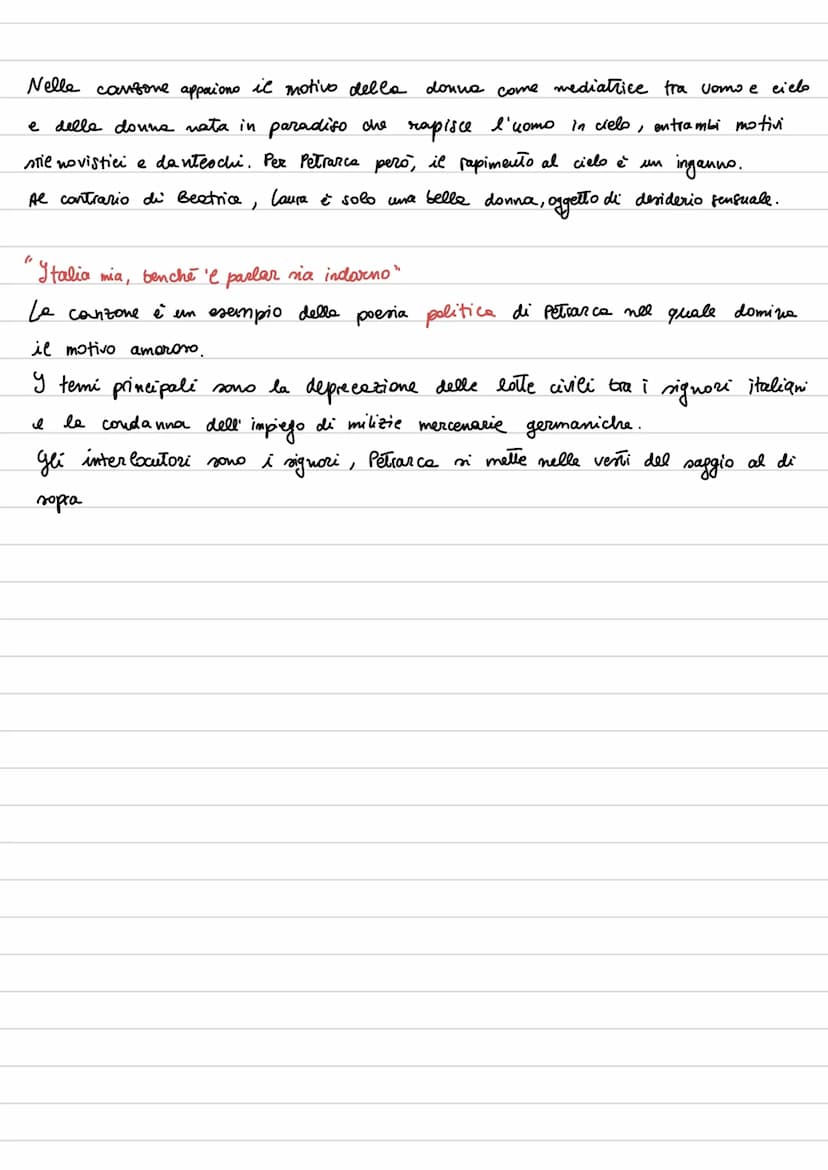 Nella canzone appaiono il motivo della donna come mediatrice tra uomo e cielo
e della donna nata in paradiso che rapisce l'uomo in cielo, entrambi motivi
stilnovistici e danteschi. Per Petrarca però, il rapimento al cielo è un inganno.
Al contrario di Beatrice, Laura è solo una bella donna, oggetto di desiderio sensuale.
"Italia mia, benché 'l parlar sia indarno"
La canzone è un esempio della poesia politica di Petrarca nel quale domina
il motivo amoroso.
I temi principali sono la deprecazione delle lotte civili tra i signori italiani
e la condanna dell'impiego di milizie mercenarie germaniche.
Gli interlocutori sono i signori, Petrarca si mette nelle vesti del saggio al di
sopra